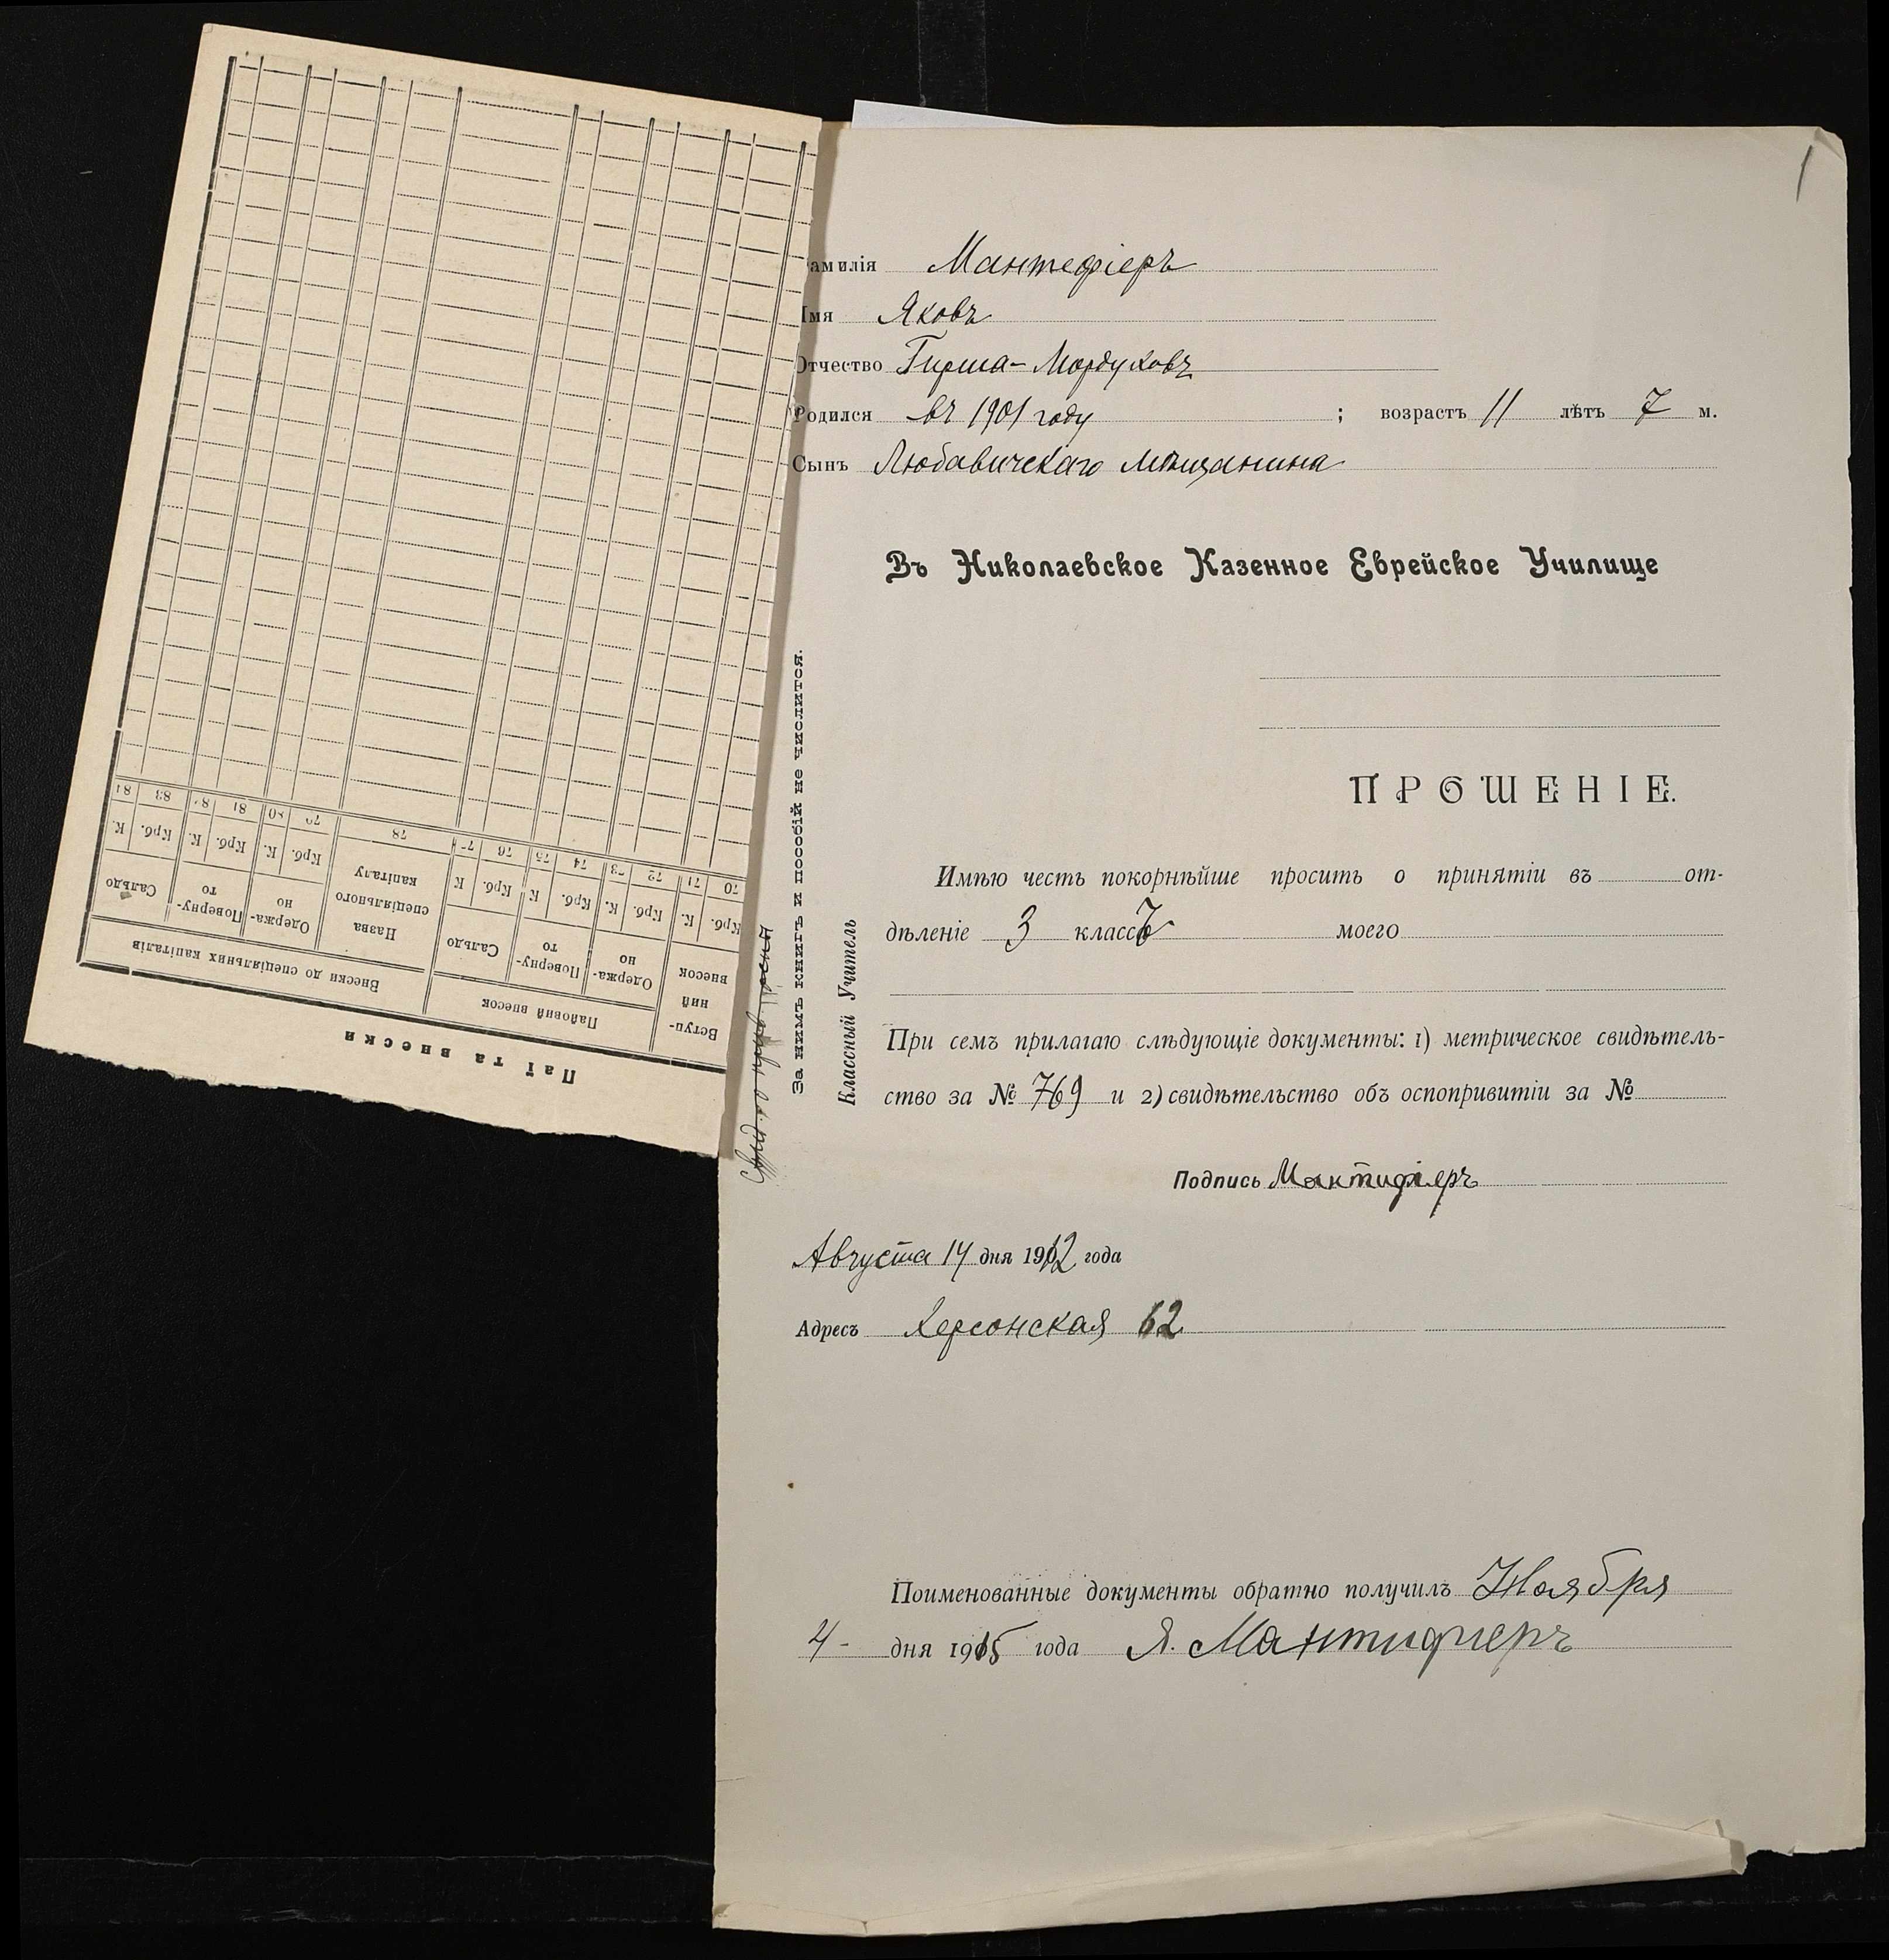 1
амилія Мантефіеръ
Имя Яковъ
Отчество Гирша-Мордуховъ
Родился въ 1901 году ; возрастъ 11 лѣтъ 7 м.
Сынъ Любавичскаго мѣщанина
Въ Николаевское Казенное Еврейское Училище
ПРОШЕНІЕ.
Имѣю честь покорнѣйше просить о принятіи въ от-
дѣленіе 3 класса моего
При семъ прилагаю слѣдующіе документы: 1) метрическое свидѣтель-
ство за № 769 и 2) свидѣтельство объ оспопривитіи за №
Подпись Мантифіеръ
Августа 14 дня 1912 года
Адресъ Херсонская 62
Поименованные документы обратно получилъ Ноября
4- дня 1915 года Я. Мантифиеръ
За нимъ книгъ и пособій не числится.
Классный Учитель
Паї та внески
Вступ-
ний
внесок
Пайовий внесок
Внески до спеціяльних капіталів
Одержа-
но
Поверну-
то
Сальдо
Назва
спеціяльного
капіталу
Одержа-
но
Поверну-
то
Сальдо
Крб. К. Крб. К. Крб. К Крб. К Крб. К. Крб. К. Крб. К.
70 71 72 73 74 75 76 77 78 79 80 81 82 83 84